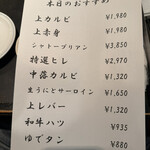 本日のおすすめ
上カルビ ¥1,980
上赤身 ¥1,980
シャトーブリアン ¥3,850
特選ヒレ ¥2,970
中落カルビ ¥1,320
生うにとサーロイン ¥1,650
上レバー ¥1,320
和牛ハツ ¥935
ゆでタン ¥880